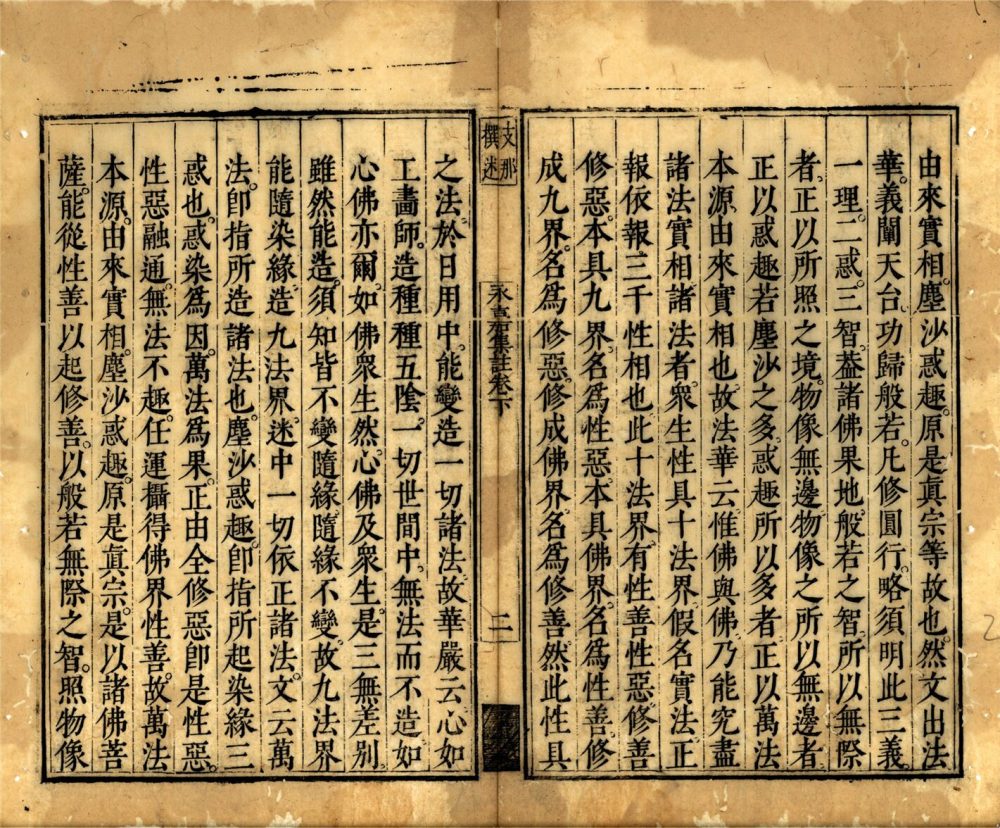 由來實相。塵沙惑趣。原是眞宗等故也。然文出法
華。義闡天台。功歸般若。凡修圓行。略須明此三義
一理。二惑。三智。葢諸佛果地般若之智。所以無際
者。正以所照之境。物像無邊。物像之所以無邊者
正以惑趣若塵沙之多。惑趣所以多者。正以萬法
本源。由來實相也。故法華云。惟佛與佛。乃能究盡
諸法實相。諸法者。眾生性具十法界。假名實法。正
報依報。三千性相也。此十法界。有性善性惡。修善
修惡。本具九界。名爲性惡。本具佛界。名爲性善。修
成九界。名爲修惡。修成佛界。名爲修善。然此性具
支那
撰述
永嘉集註卷下
二
之法。於日用中。能變造一切諸法。故華嚴云。心如
工畵師。造種種五陰。一切世間中。無法而不造。如
心佛亦爾。如佛衆生然。心佛及衆生。是三無差別。
雖然能造。須知皆不變隨緣。隨緣不變。故九法界
能隨染緣。造九法界。迷中一切依正諸法。文云。萬
法。卽指所造諸法也。塵沙惑趣。卽指所起染緣三
惑也。惑染爲因。萬法爲果。正由全修惡卽是性惡。
性惡融通。無法不趣。任運攝得佛界性善。故萬法
本源。由來實相。塵沙惑趣。原是眞宗。是以諸佛菩
薩。能從性善以起修善。以般若無際之智。照物像